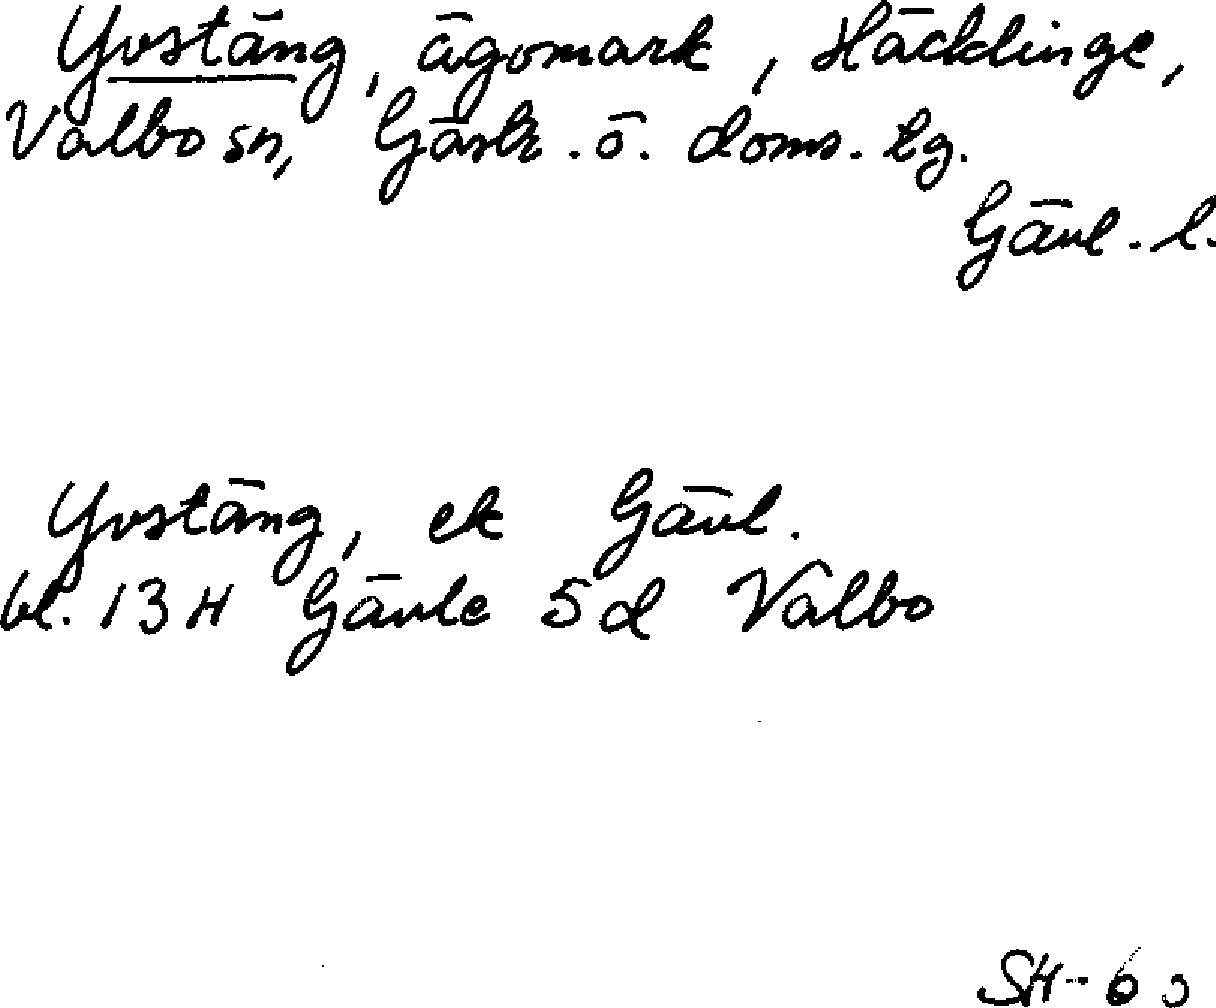 Yvstäng, ägomark, Häcklinge,
Valbo sn, Gästr. ö. doms. lg.
Gävl. l.
Yvstäng, ek Gävl.
bl. 13 H Gävle 5 d Valbo
SH-6